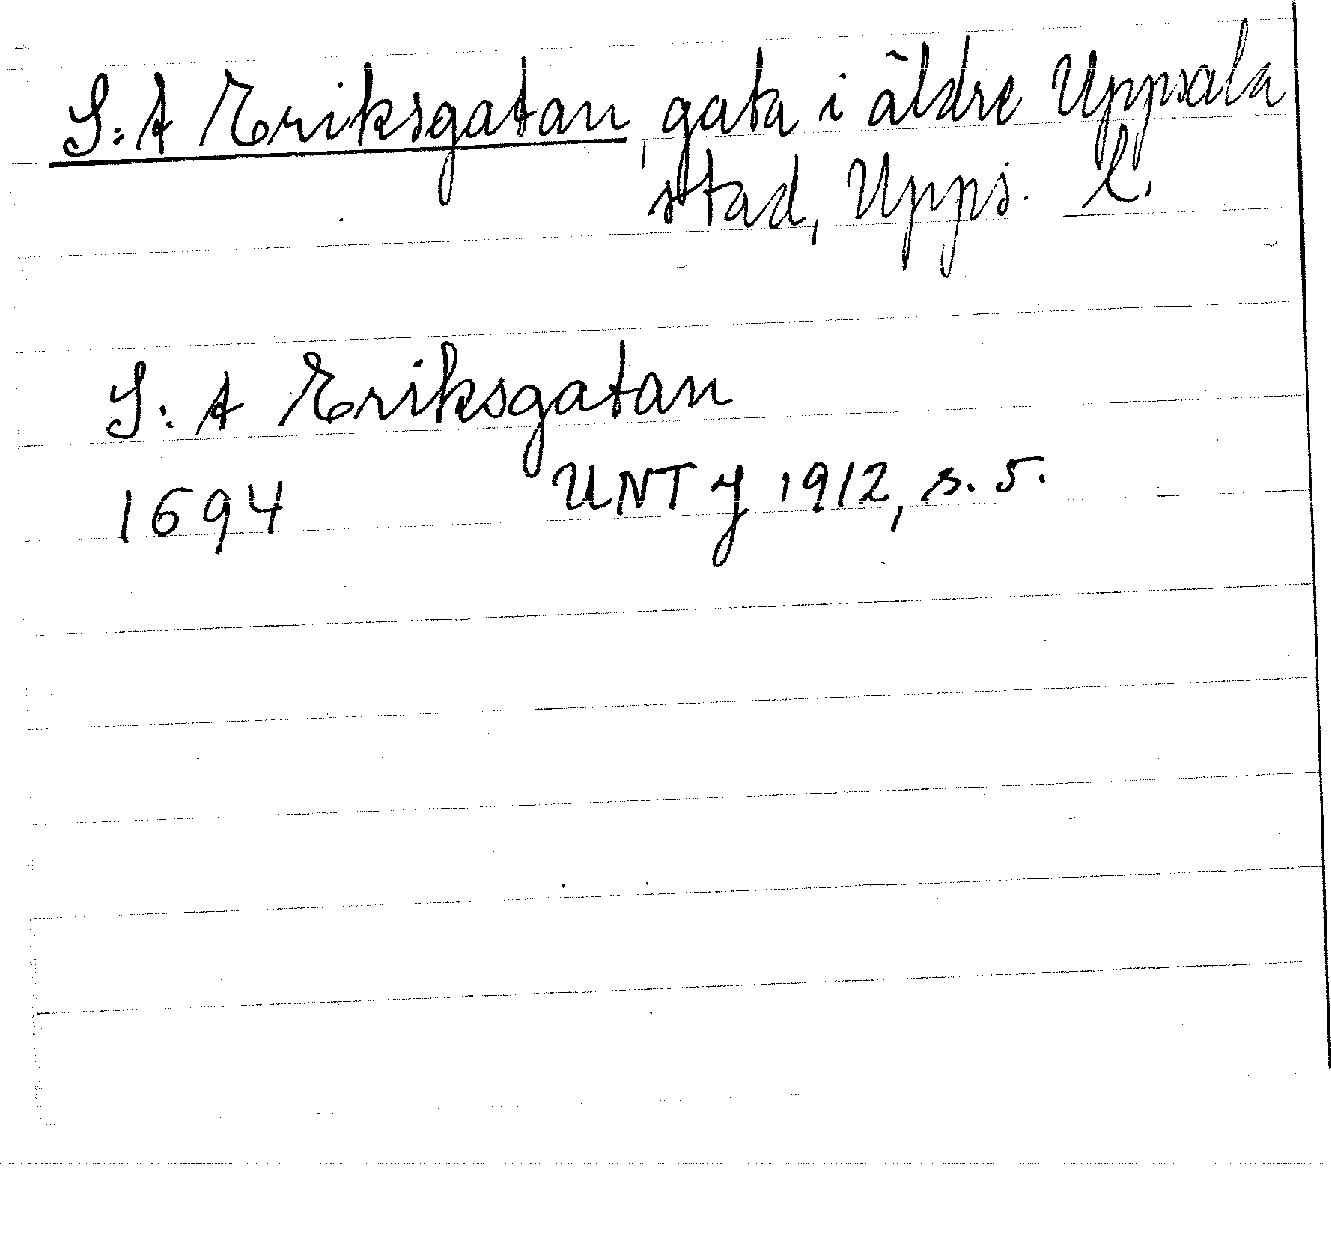 S:t Eriksgatan, gata i äldre Uppsala
stad, Upps. l.
S:t Eriksgatan
1694 UNT J 1912, s. 5.